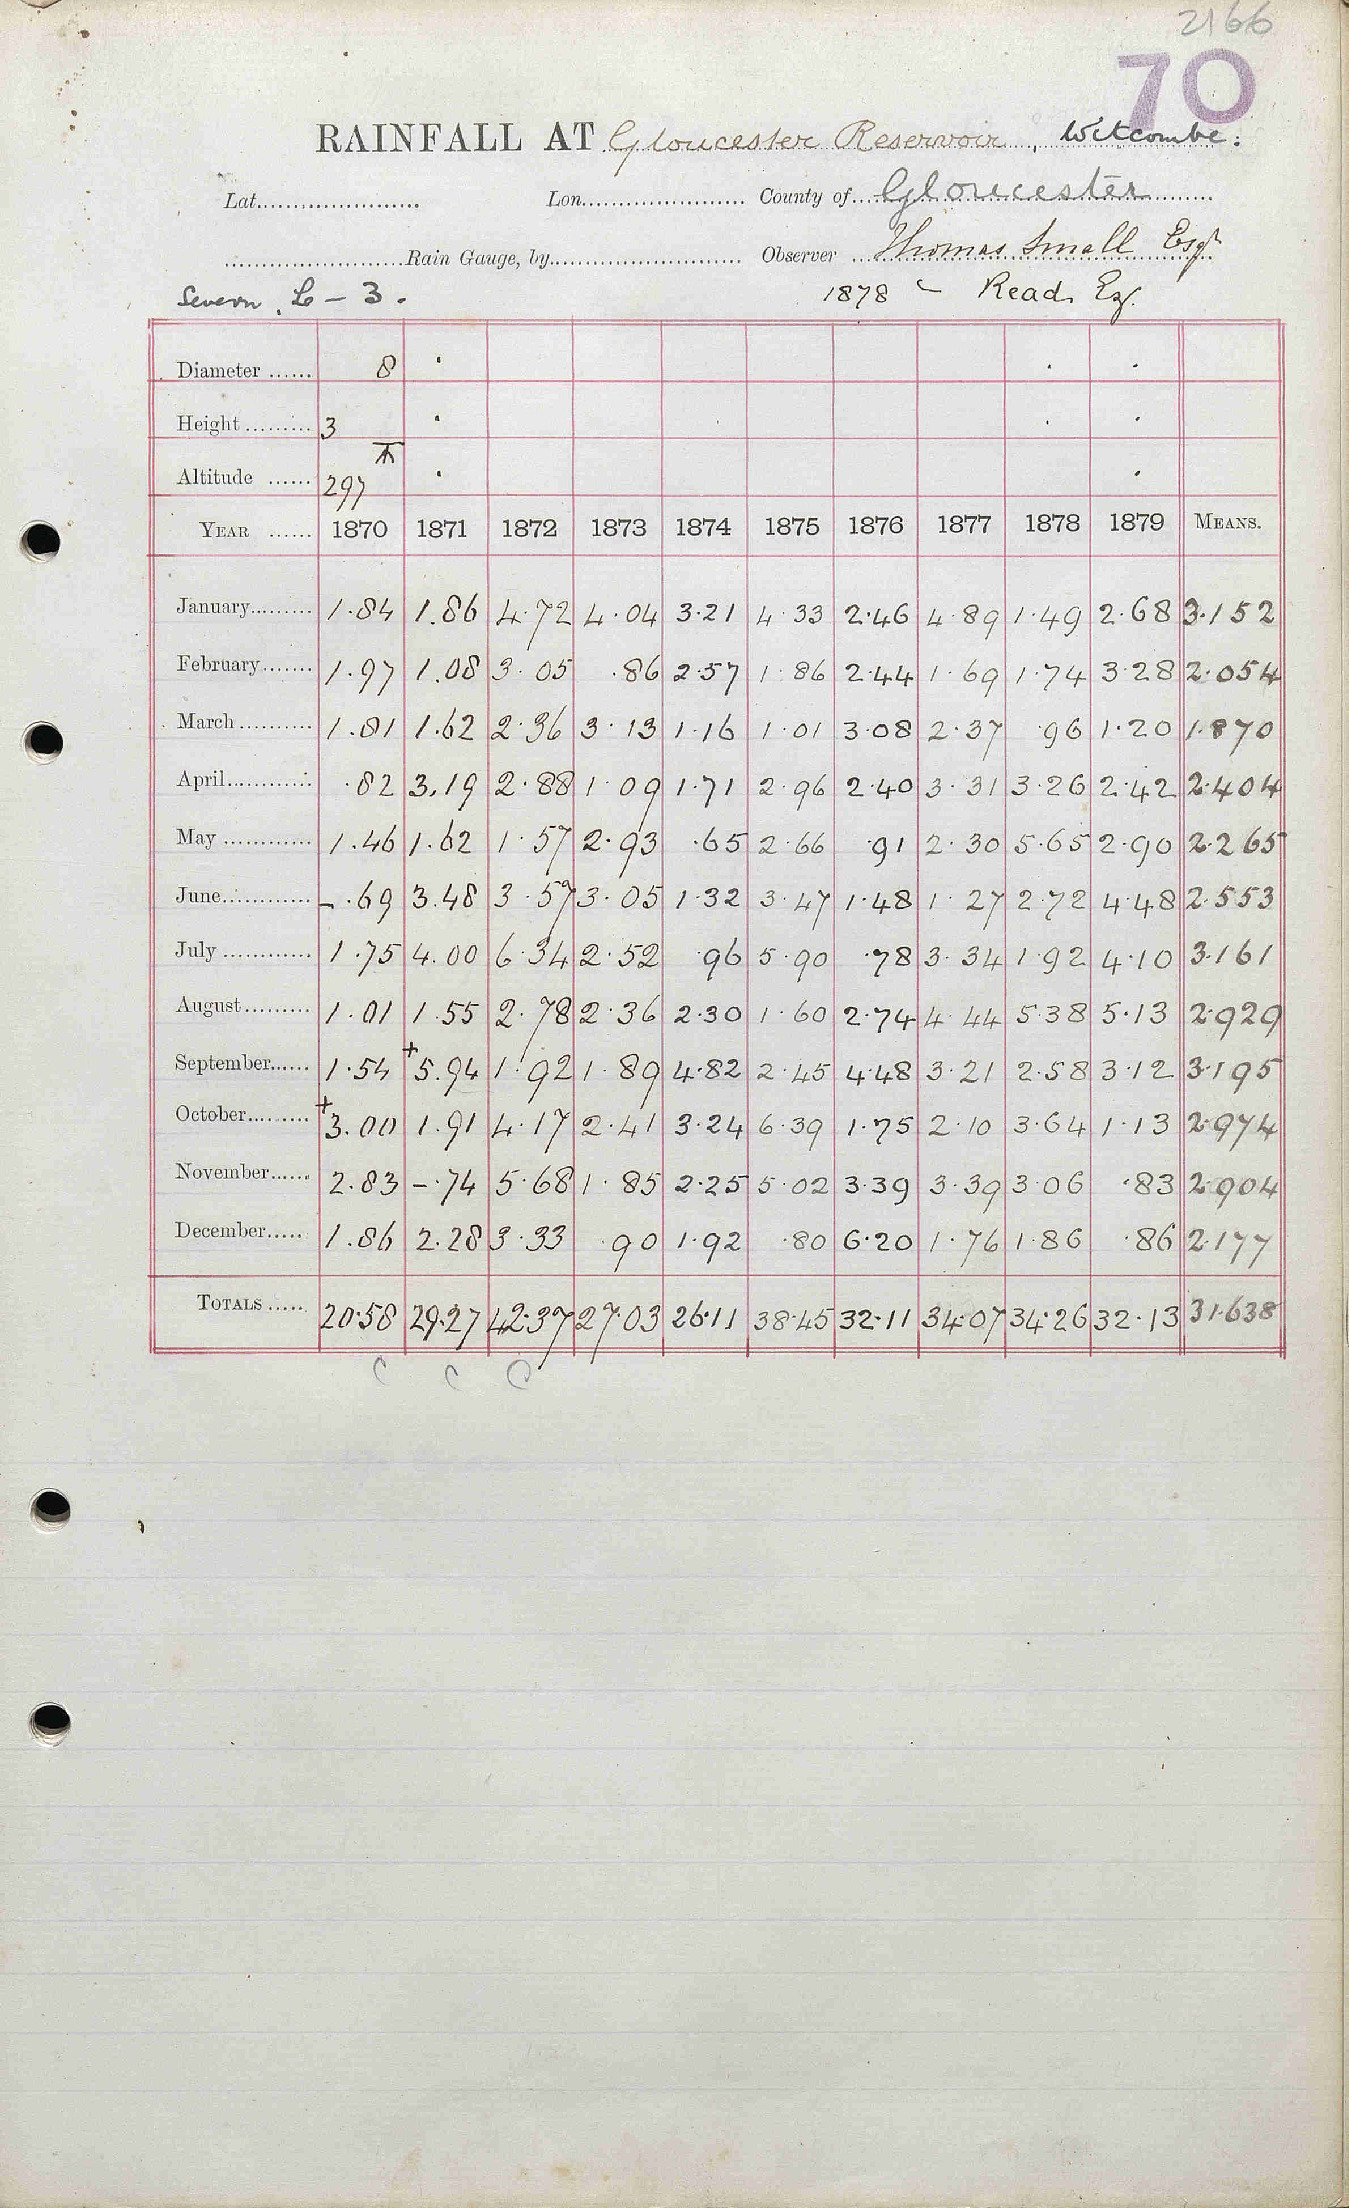 2166
70
RAINFALL AT Gloucester Reservoir, Witcombe:
Lat. Lon. County of Gloucester
Rain Gauge, by Observer Thomas Small Esqr
Severn. L - 3. 1878 Read, Esq.
Diameter 8
Height 3
Altitude 297
YEAR 1870 1871 1872 1873 1874 1875 1876 1877 1878 1879 MEANS.
January 1.84 1.86 4.72 4.04 3.21 4.33 2.46 4.89 1.49 2.68 3.152
February 1.97 1.08 3.05 .86 2.57 1.86 2.44 1.69 1.74 3.28 2.054
March 1.81 1.62 2.36 3.13 1.16 1.01 3.08 2.37 .96 1.20 1.870
April .82 3.19 2.88 1.09 1.71 2.96 2.40 3.31 3.26 2.42 2.404
May 1.46 1.62 1.57 2.93 .65 2.66 .91 2.30 5.65 2.90 2.265
June - .69 3.48 3.57 3.05 1.32 3.47 1.48 1.27 2.72 4.48 2.553
July 1.75 4.00 6.34 2.52 .96 5.90 .78 3.34 1.92 4.10 3.161
August 1.01 1.55 2.78 2.36 2.30 1.60 2.74 4.44 5.38 5.13 2.929
September 1.54 +5.94 1.92 1.89 4.82 2.45 4.48 3.21 2.58 3.12 3.195
October +3.00 1.91 4.17 2.41 3.24 6.39 1.75 2.10 3.64 1.13 2.974
November 2.83 - .74 5.68 1.85 2.25 5.02 3.39 3.39 3.06 .83 2.904
December 1.86 2.28 3.33 .90 1.92 .80 6.20 1.76 1.86 .86 2.177
TOTALS 20.58 29.27 42.37 27.03 26.11 38.45 32.11 34.07 34.26 32.13 31.638
C C C